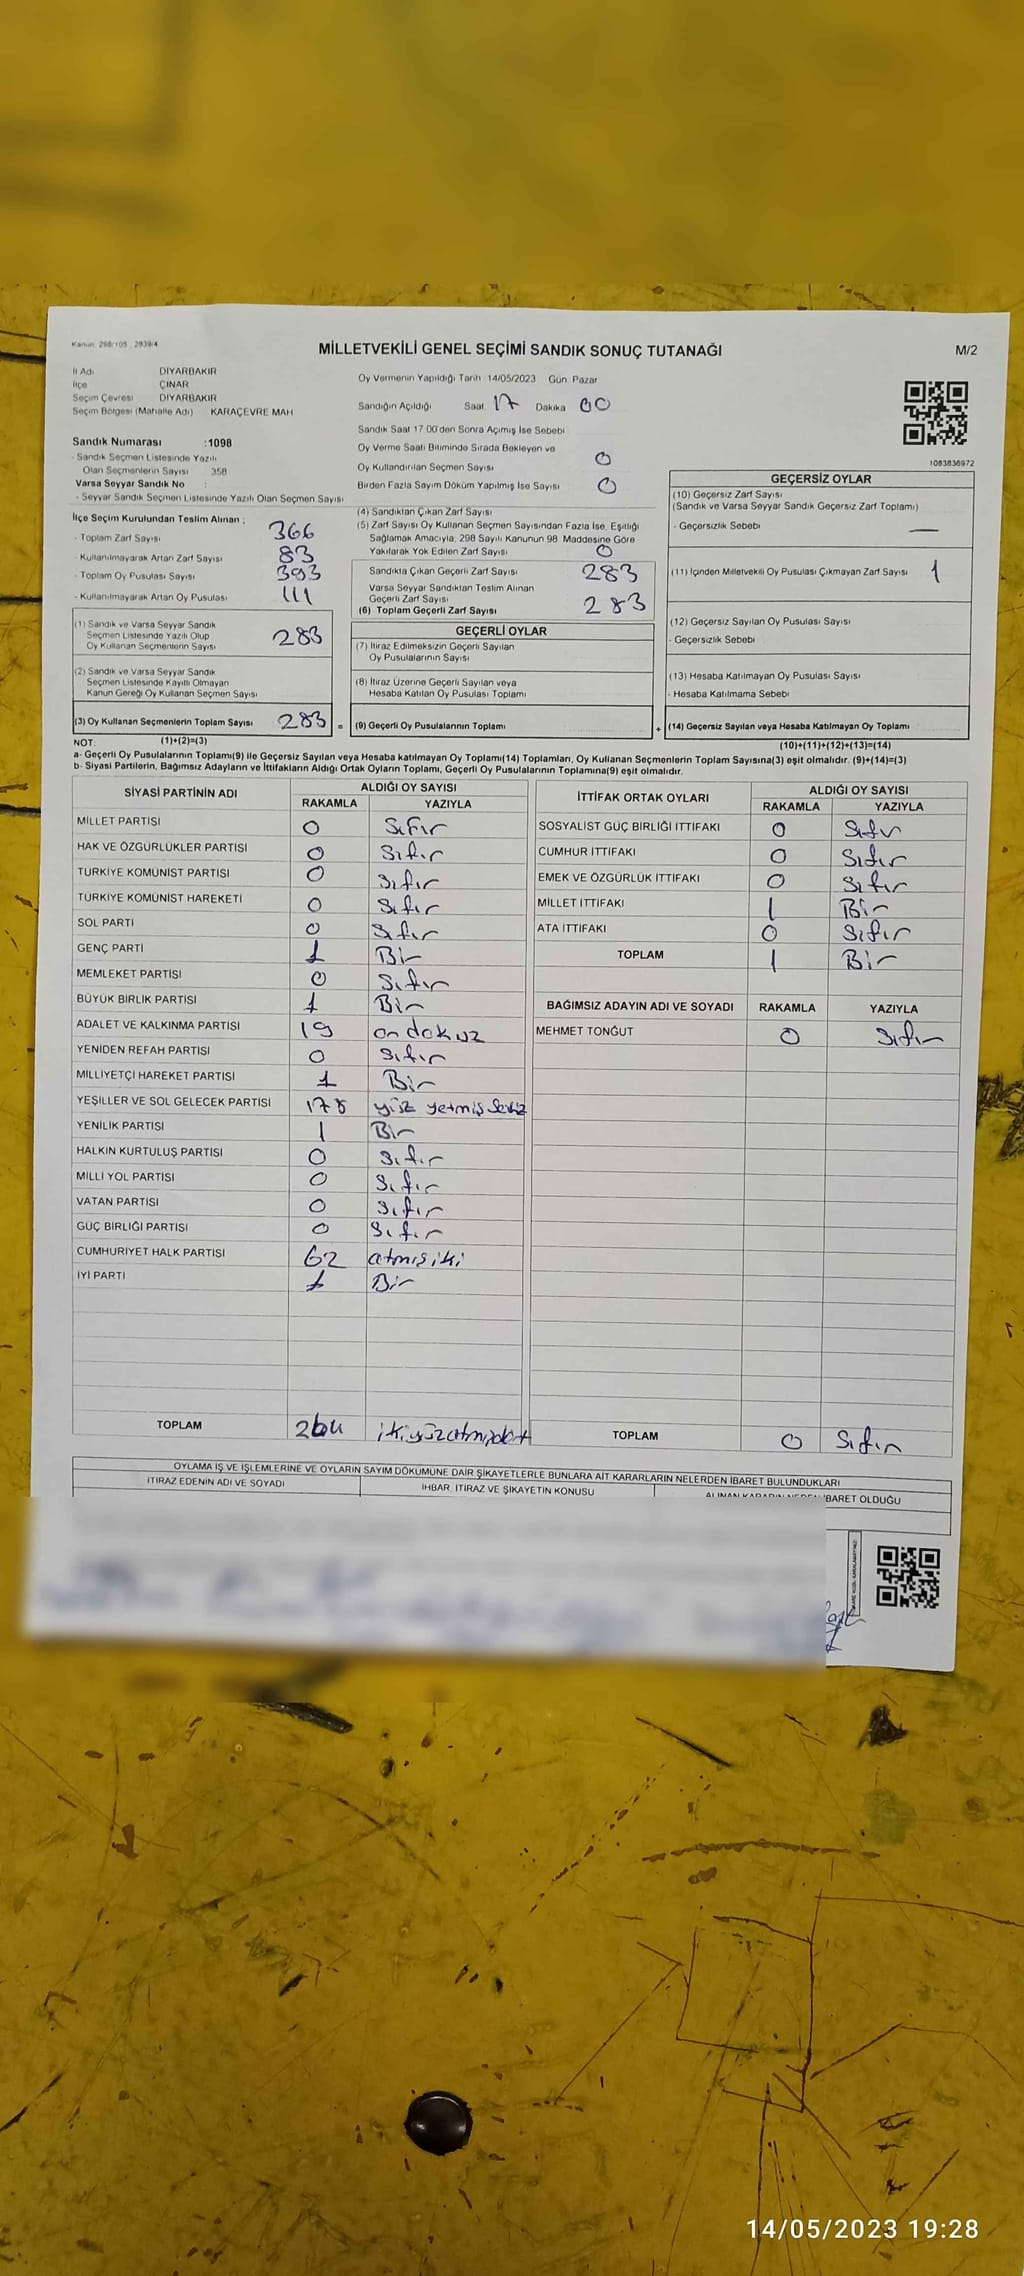 Kanun: 298/105 , 2839/4
MİLLETVEKİLİ GENEL SEÇİMİ SANDIK SONUÇ TUTANAĞI
M/2
İl Adı DİYARBAKIR
İlçe ÇINAR
Seçim Çevresi DİYARBAKIR
Seçim Bölgesi (Mahalle Adı) KARAÇEVRE MAH
Sandık Numarası :1098
- Sandık Seçmen Listesinde Yazılı
Olan Seçmenlerin Sayısı 358
Varsa Seyyar Sandık No :
- Seyyar Sandık Seçmen Listesinde Yazılı Olan Seçmen Sayısı
Oy Vermenin Yapıldığı Tarih 14/05/2023 Gün: Pazar
Sandığın Açıldığı Saat 17 Dakika 00
Sandık Saat 17 00'den Sonra Açımış İse Sebebi
Oy Verme Saati Bitiminde Sırada Bekleyen ve
Oy Kullandırılan Seçmen Sayısı 0
Birden Fazla Sayım Döküm Yapılmış İse Sayısı 0
1083836972
İlçe Seçim Kurulundan Teslim Alınan ;
- Toplam Zarf Sayısı 366
- Kullanılmayarak Artan Zarf Sayısı 83
- Toplam Oy Pusulası Sayısı 393
- Kullanılmayarak Artan Oy Pusulası 111
(1) Sandık ve Varsa Seyyar Sandık
Seçmen Listesinde Yazılı Olup
Oy Kullanan Seçmenlerin Sayısı 283
(2) Sandık ve Varsa Seyyar Sandık
Seçmen Listesinde Kayıtlı Olmayan
Kanun Gereği Oy Kullanan Seçmen Sayısı
(3) Oy Kullanan Seçmenlerin Toplam Sayısı 283 =
(1)+(2)=(3)
(4) Sandıktan Çıkan Zarf Sayısı
(5) Zarf Sayısı Oy Kullanan Seçmen Sayısından Fazla İse, Eşitliği
Sağlamak Amacıyla, 298 Sayılı Kanunun 98. Maddesine Göre
Yakılarak Yok Edilen Zarf Sayısı 0
Sandıkta Çıkan Geçerli Zarf Sayısı 283
Varsa Seyyar Sandıktan Teslim Alınan
Geçerli Zarf Sayısı
(6) Toplam Geçerli Zarf Sayısı 283
GEÇERLİ OYLAR
(7) İtiraz Edilmeksizin Geçerli Sayılan
Oy Pusulalarının Sayısı
(8) İtiraz Üzerine Geçerli Sayılan veya
Hesaba Katılan Oy Pusulası Toplamı
(9) Geçerli Oy Pusulalarının Toplamı +
GEÇERSİZ OYLAR
(10) Geçersiz Zarf Sayısı
(Sandık ve Varsa Seyyar Sandık Geçersiz Zarf Toplamı)
- Geçersizlik Sebebi —
(11) İçinden Milletvekili Oy Pusulası Çıkmayan Zarf Sayısı 1
(12) Geçersiz Sayılan Oy Pusulası Sayısı
- Geçersizlik Sebebi
(13) Hesaba Katılmayan Oy Pusulası Sayısı
- Hesaba Katılmama Sebebi
(14) Geçersiz Sayılan veya Hesaba Katılmayan Oy Toplamı
(10)+(11)+(12)+(13)=(14)
NOT:
a- Geçerli Oy Pusulalarının Toplamı(9) ile Geçersiz Sayılan veya Hesaba katılmayan Oy Toplamı(14) Toplamları, Oy Kullanan Seçmenlerin Toplam Sayısına(3) eşit olmalıdır. (9)+(14)=(3)
b- Siyasi Partilerin, Bağımsız Adayların ve İttifakların Aldığı Ortak Oyların Toplamı, Geçerli Oy Pusulalarının Toplamına(9) eşit olmalıdır.
SİYASİ PARTİNİN ADI ALDIĞI OY SAYISI
RAKAMLA YAZIYLA
MİLLET PARTİSİ 0 Sıfır
HAK VE ÖZGÜRLÜKLER PARTİSİ 0 Sıfır
TÜRKİYE KOMÜNİST PARTİSİ 0 Sıfır
TÜRKİYE KOMÜNİST HAREKETİ 0 Sıfır
SOL PARTİ 0 Sıfır
GENÇ PARTİ 1 Bir
MEMLEKET PARTİSİ 0 Sıfır
BÜYÜK BİRLİK PARTİSİ 1 Bir
ADALET VE KALKINMA PARTİSİ 19 on dokuz
YENİDEN REFAH PARTİSİ 0 Sıfır
MİLLİYETÇİ HAREKET PARTİSİ 1 Bir
YEŞİLLER VE SOL GELECEK PARTİSİ 178 yüz yetmiş sekiz
YENİLİK PARTİSİ 1 Bir
HALKIN KURTULUŞ PARTİSİ 0 Sıfır
MİLLİ YOL PARTİSİ 0 Sıfır
VATAN PARTİSİ 0 Sıfır
GÜÇ BİRLİĞİ PARTİSİ 0 Sıfır
CUMHURİYET HALK PARTİSİ 62 atmış iki
İYİ PARTİ 1 Bir
TOPLAM 264 ikiyüzatmışdört
İTTİFAK ORTAK OYLARI ALDIĞI OY SAYISI
RAKAMLA YAZIYLA
SOSYALİST GÜÇ BİRLİĞİ İTTİFAKI 0 Sıfır
CUMHUR İTTİFAKI 0 Sıfır
EMEK VE ÖZGÜRLÜK İTTİFAKI 0 Sıfır
MİLLET İTTİFAKI 1 Bir
ATA İTTİFAKI 0 Sıfır
TOPLAM 1 Bir
BAĞIMSIZ ADAYIN ADI VE SOYADI RAKAMLA YAZIYLA
MEHMET TONĞUT 0 Sıfır
TOPLAM 0 Sıfır
OYLAMA İŞ VE İŞLEMLERİNE VE OYLARIN SAYIM DÖKÜMÜNE DAİR ŞİKAYETLERLE BUNLARA AİT KARARLARIN NELERDEN İBARET BULUNDUKLARI
İTİRAZ EDENİN ADI VE SOYADI
İHBAR, İTİRAZ VE ŞİKAYETİN KONUSU
ALINAN KARARIN NEDEN İBARET OLDUĞU
14/05/2023 19:28